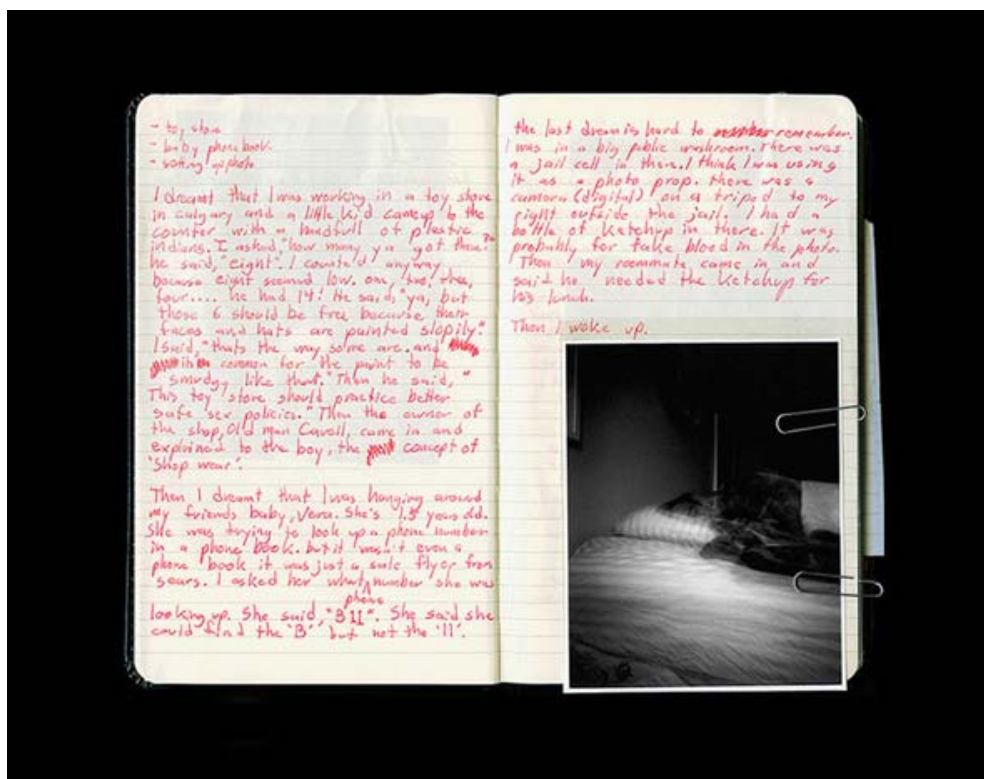 - toy store
- baby phone book.
- setting up photo
I dreamt that I was working in a toy store
in calgary and a little kid came up to the
counter with a handfull of plastic
indians. I asked, "how many ya got there?"
he said, "eight". I counted anyway
because eight seemed low. one, two, three,
four.... he had 14! He said, "ya, but
those 6 should be free because their
faces and hats are painted slopily."
I said, "thats the way some are. and
its common for the paint to be
smudgy like that." Then he said, "
This toy store should practice better
safe sex policies." Then the owner of
the shop, Old man Cavell, came in and
explained to the boy, the concept of
'Shop wear'.
Then I dreamt that I was hanging around
my friends baby, Vera. She's 1.5 years old.
She was trying to look up a phone number
in a phone book. but it wasn't even a
phone book it was just a sale flyer from
sears. I asked her what phone number she was
looking up. She said, "B11". She said she
could find the 'B' but not the '11'.
the last dream is hard to remember.
I was in a big public washroom. There was
a jail cell in there. I think I was using
it as a photo prop. there was a
camera (digital) on a tripod to my
right outside the jail. I had a
bottle of Ketchup in there. It was
probably for fake blood in the photo.
Then my roommate came in and
said he needed the Ketchup for
his lunch.
Then I woke up.